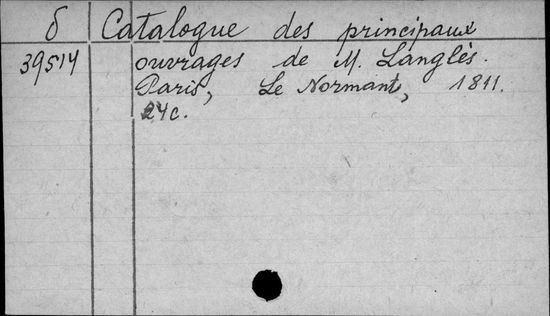 δ Catalogue des principaux
39514 ouvrages de M. Langlès.
Paris, Le Normant, 1811.
24c.